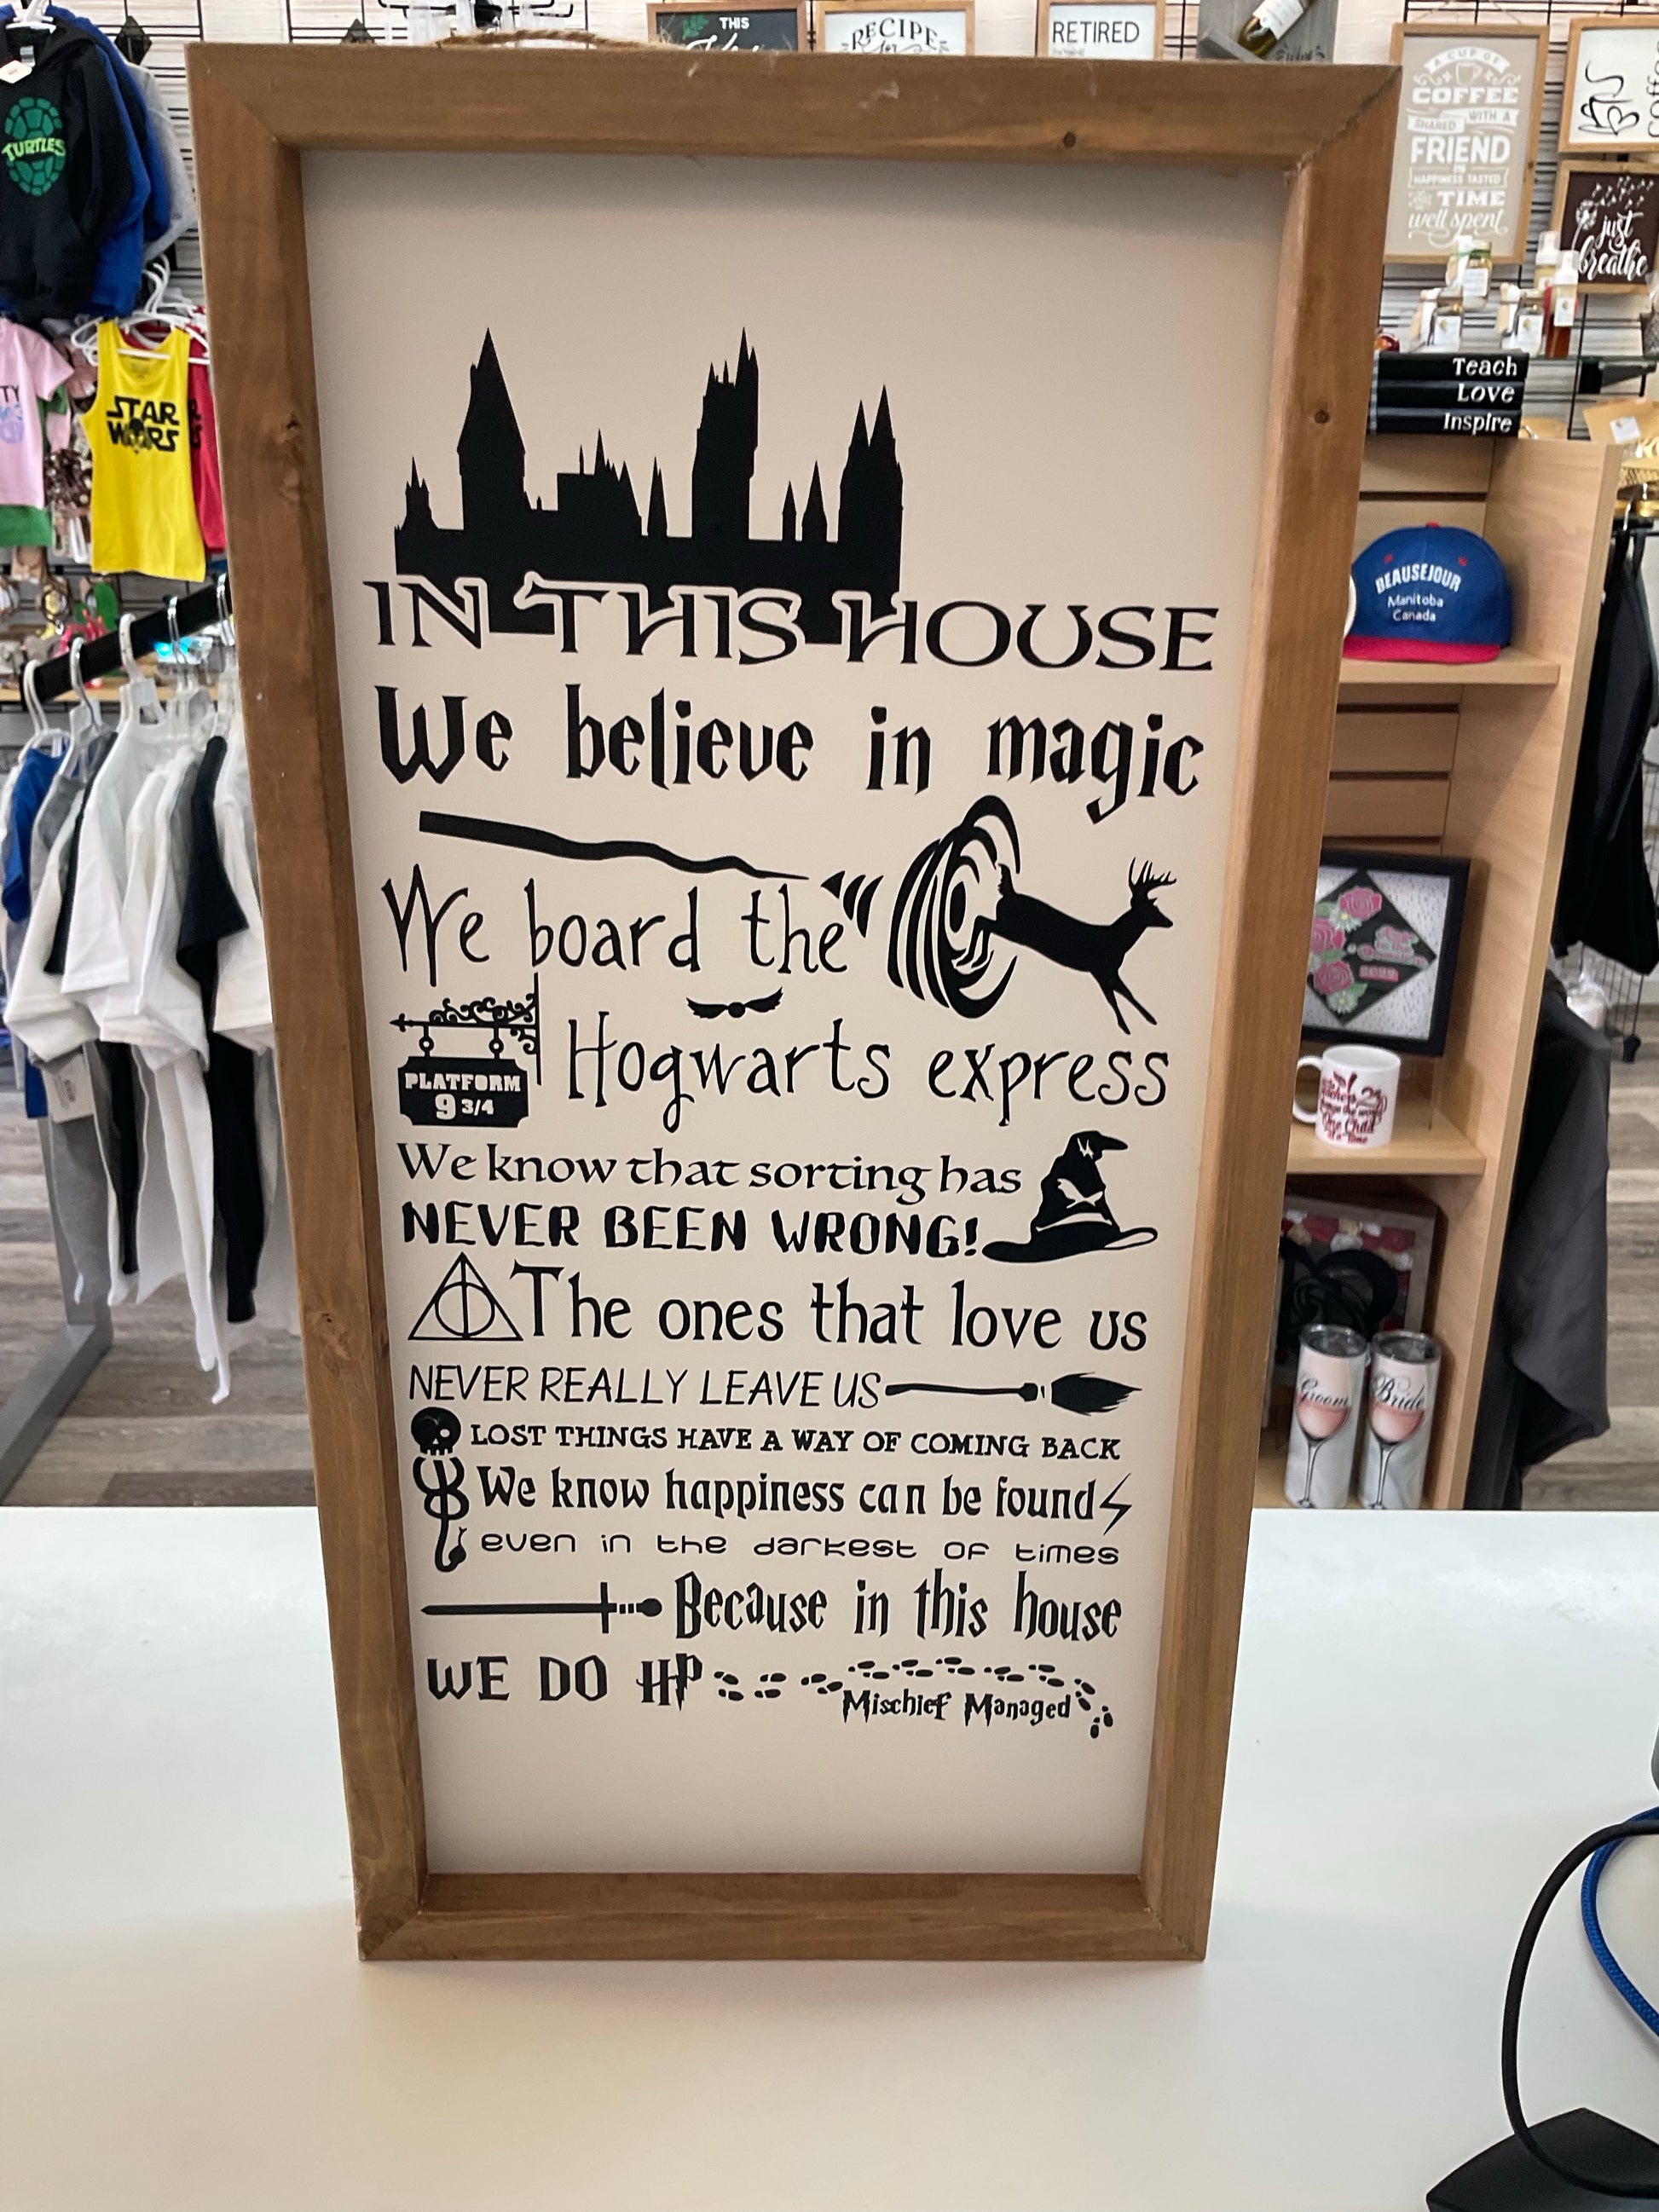 THIS
RECIPE
for
RETIRED
A CUP OF
COFFEE
SHARED WITH A
FRIEND
IS
HAPPINESS TASTED
AND TIME
well spent
just
breathe
TURTLES
STAR
WARS
Teach
Love
Inspire
BEAUSEJOUR
Manitoba
Canada
IN THIS HOUSE
We believe in magic
We board the
PLATFORM
9 3/4
Hogwarts express
We know that sorting has
NEVER BEEN WRONG!
The ones that love us
NEVER REALLY LEAVE US
LOST THINGS HAVE A WAY OF COMING BACK
We know happiness can be found
even in the darkest of times
Because in this house
WE DO HP
Mischief Managed
One Child
at a Time
Groom
Bride